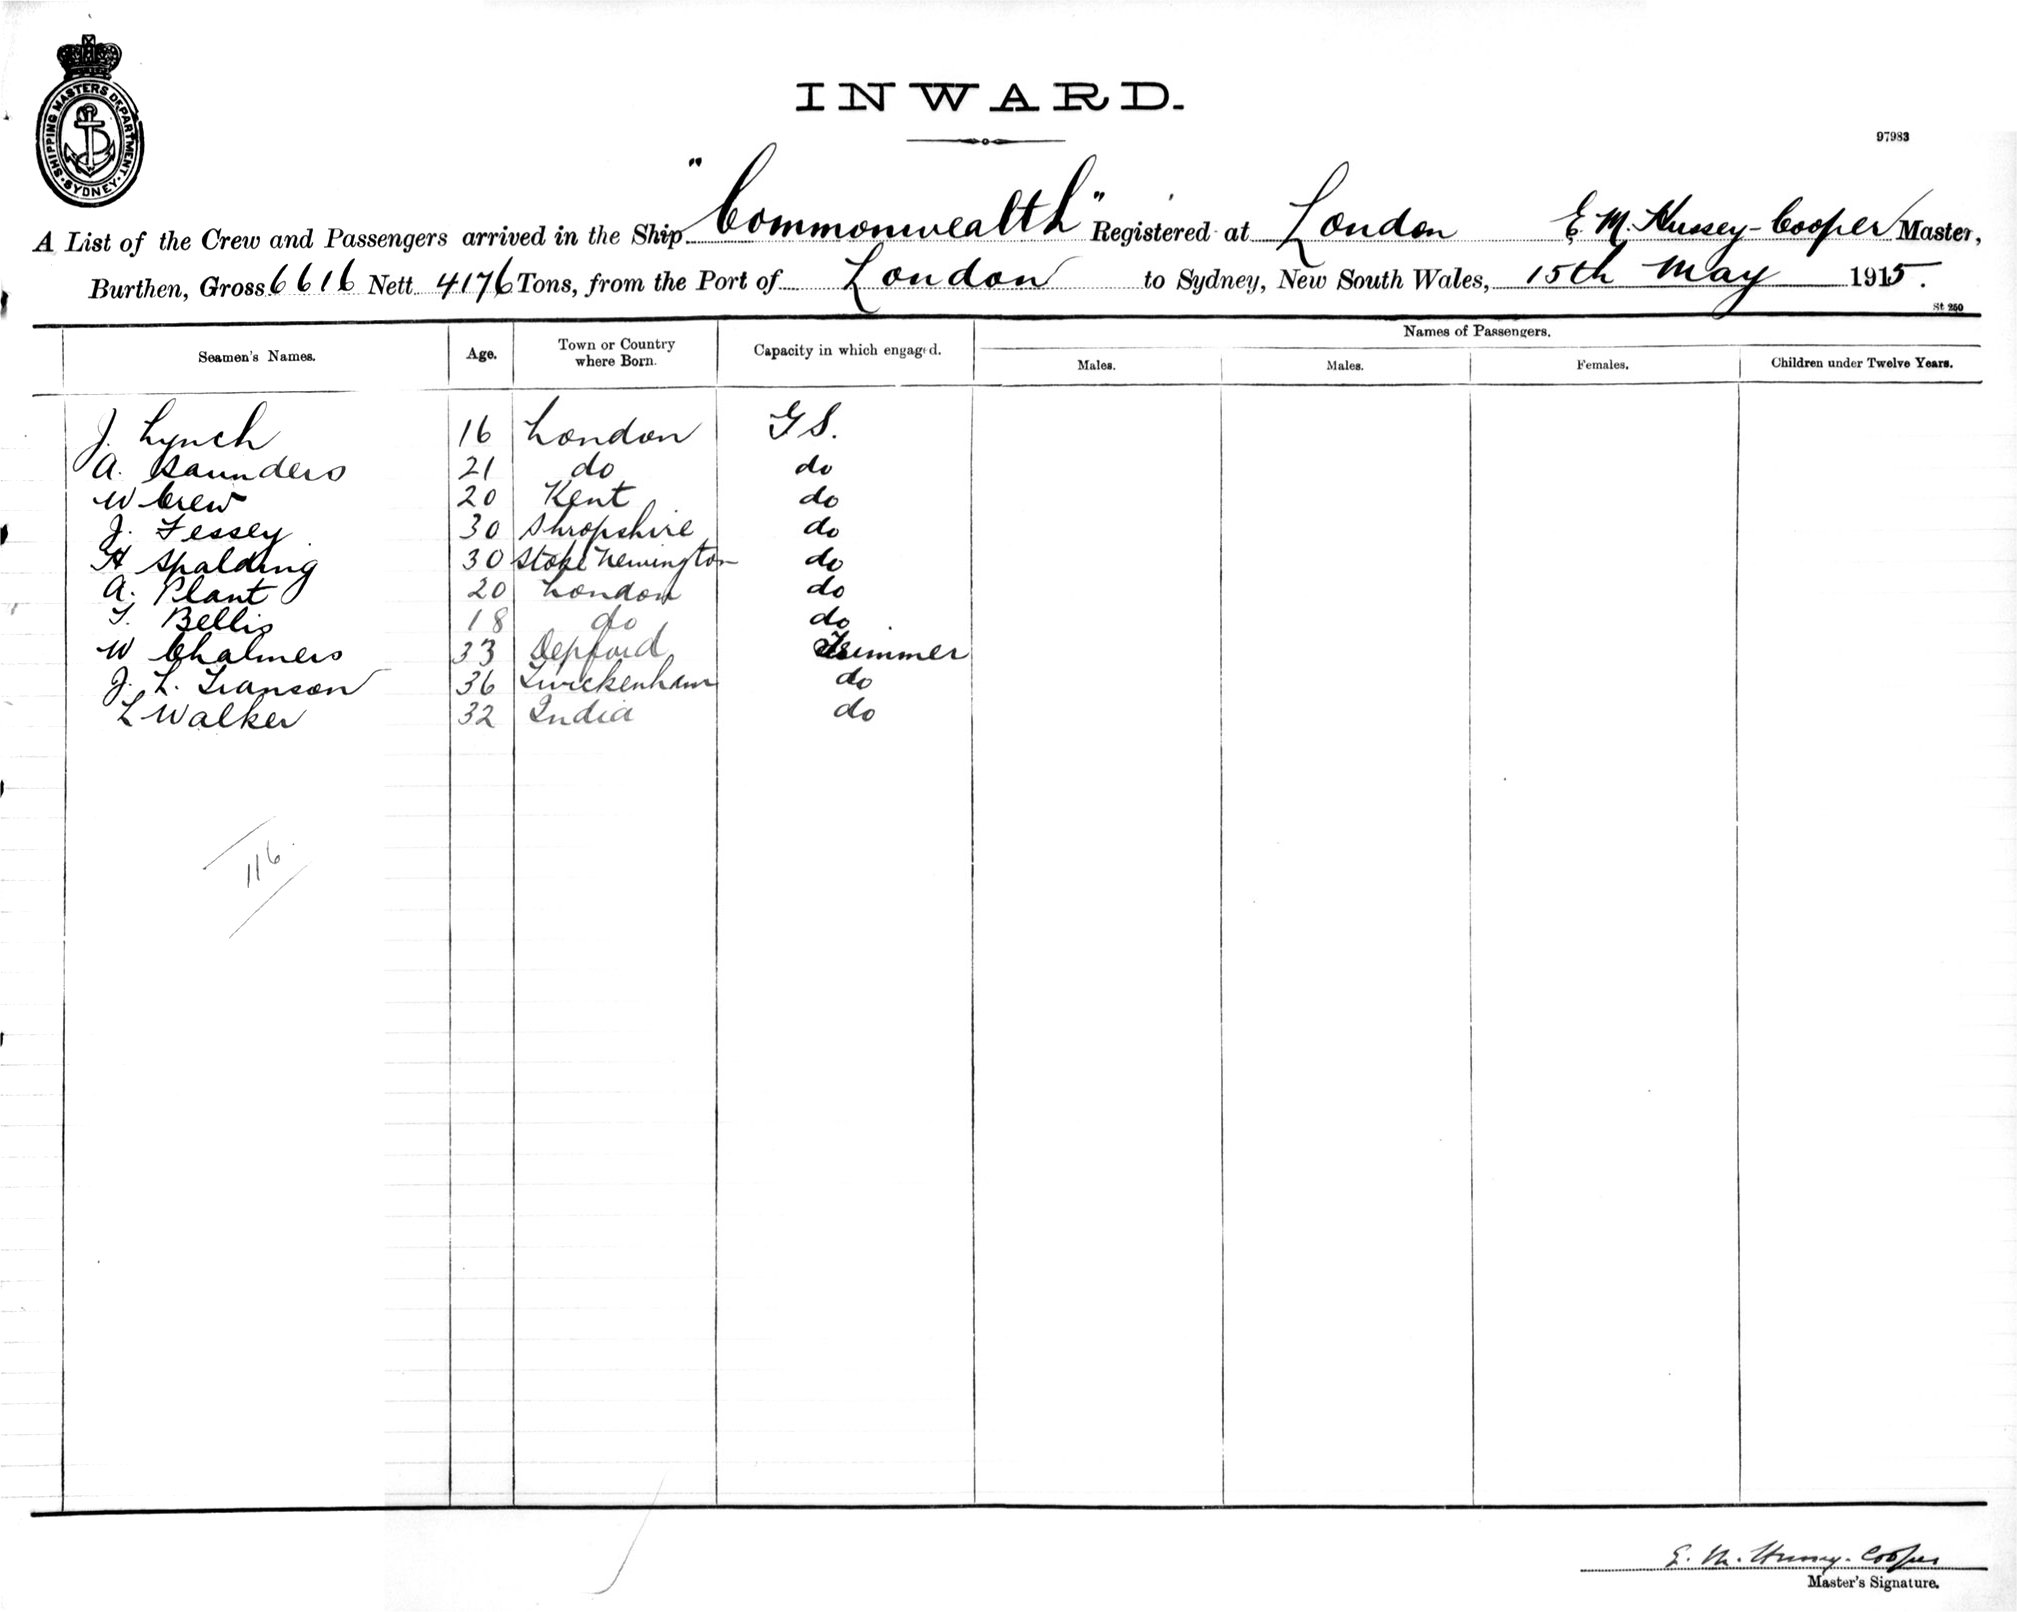 SHIPPING MASTERS DEPARTMENT. SYDNEY
INWARD.
97983
A List of the Crew and Passengers arrived in the Ship "Commonwealth" Registered at London E. M. Hussey-Cooper Master,
Burthen, Gross 6616 Nett 4176 Tons, from the Port of London to Sydney, New South Wales, 15th May 1915.
St 250
Seamen's Names. Age. Town or Country where Born. Capacity in which engaged. Names of Passengers.
Males. Males. Females. Children under Twelve Years.
J. Lynch 16 London G S.
A. Saunders 21 do do
W Crew 20 Kent do
J. Fessey 30 Shropshire do
H Spalding 30 Stoke Newington do
A. Plant 20 London do
T. Bellis 18 do do
W Chalmers 33 Depford Trimmer
J. L. Transon 36 Twickenham do
L Walker 32 India do
116
E. M. Hussey-Cooper
Master's Signature.